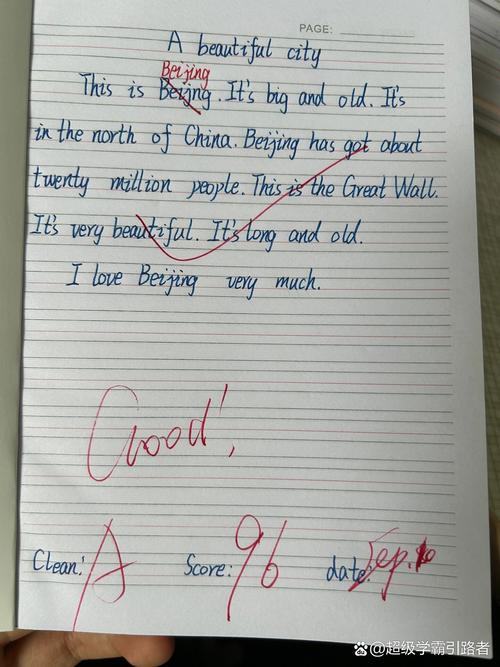 PAGE:
A beautiful city
Beijing
This is Beijing. It's big and old. It's
in the north of China. Beijing has got about
twenty million people. This is the Great Wall.
It's very beautiful. It's long and old.
I love Beijing very much.
Good!
Clean: A Score: 96 date: Sep.
百家号/超级学霸引路者